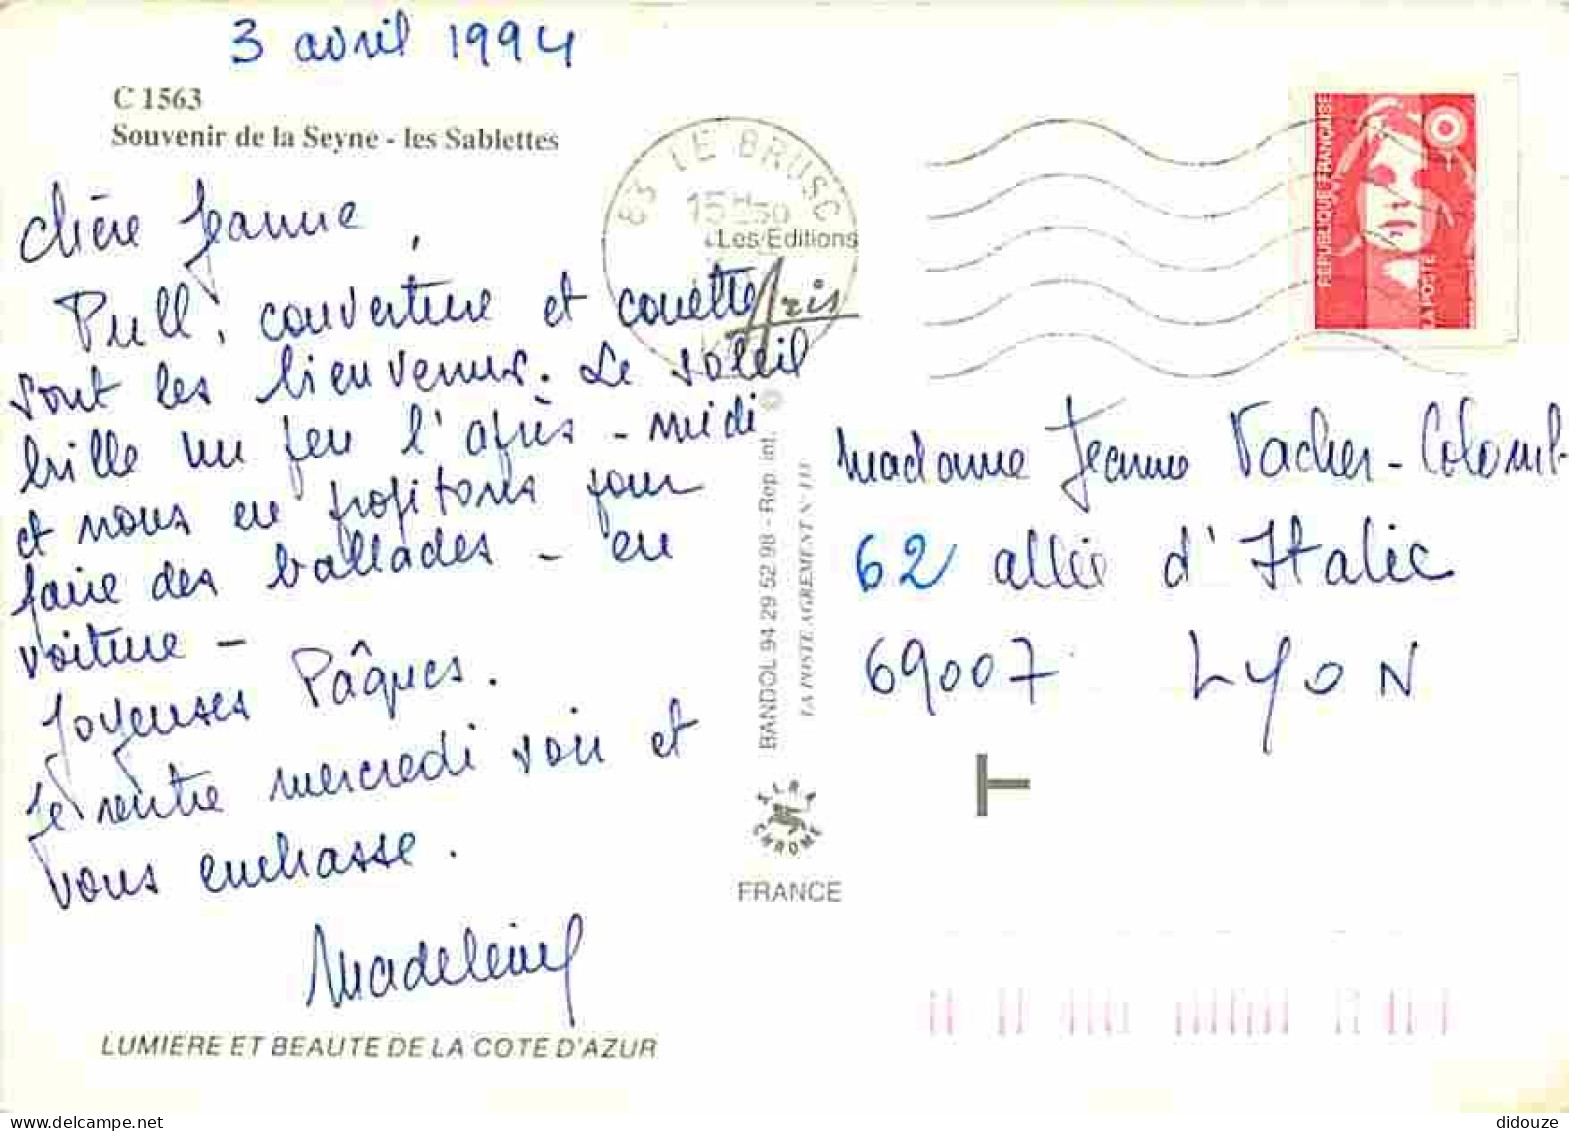 3 avril 1994
C 1563
Souvenir de la Seyne - les Sablettes
Chère Jeanne,
Pull, couverture et couette
sont les bienvenus. Le soleil
brille un peu l'après-midi
et nous en profitons pour
faire des ballades - en
voiture -
Joyeuses Pâques.
Je rentre mercredi soir et
vous embrasse.
Madeleine
LUMIERE ET BEAUTE DE LA COTE D'AZUR
83 LE BRUSC
15H
Les Editions
Aris
BANDOL 94 29 52 98 - Rep. int. ©
LA POSTE AGREMENT N° 111
FRANCE
REPUBLIQUE FRANÇAISE
LA POSTE
Madame Jeanne Vacher-Colomb
62 allée d'Italie
69007 LYON
T
didouze